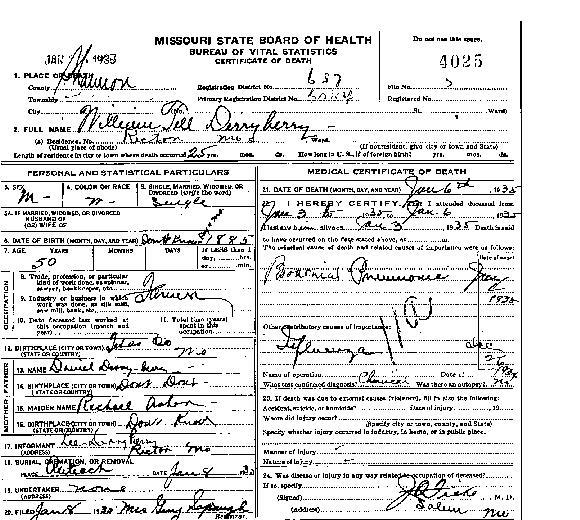 MISSOURI STATE BOARD OF HEALTH
BUREAU OF VITAL STATISTICS
CERTIFICATE OF DEATH
Do not use this space.
4025
JAN 1935
1. PLACE OF DEATH
County Shannon
Registration District No. 687
File No. 3
Township
Primary Registration District No.
Registered No.
City
St. Ward)
2. FULL NAME William Tell Derryberry
(a) Residence, No. Rector Mo Ward.
(Usual place of abode) (If nonresident, give city or town and State)
Length of residence in city or town where death occurred 25 yrs. mos. ds. How long in U. S., if of foreign birth? yrs. mos. ds.
PERSONAL AND STATISTICAL PARTICULARS
3. SEX M
4. COLOR OR RACE W
5. SINGLE, MARRIED, WIDOWED, OR DIVORCED (write the word) Single
5A. IF MARRIED, WIDOWED, OR DIVORCED
HUSBAND OF
(OR) WIFE OF
6. DATE OF BIRTH (MONTH, DAY, AND YEAR) Dont Know 1885
7. AGE YEARS MONTHS DAYS If LESS than 1 day, hrs. or min.
50
OCCUPATION
8. Trade, profession, or particular kind of work done, as spinner, sawyer, bookkeeper, etc. Farmer
9. Industry or business in which work was done, as silk mill, saw mill, bank, etc.
10. Date deceased last worked at this occupation (month and year)
11. Total time (years) spent in this occupation
12. BIRTHPLACE (CITY OR TOWN) Texas Co
(STATE OR COUNTRY) Mo
FATHER
13. NAME Daniel Derryberry
14. BIRTHPLACE (CITY OR TOWN) Dont
(STATE OR COUNTRY)
MOTHER
15. MAIDEN NAME Rachael
16. BIRTHPLACE (CITY OR TOWN) Dont Know
(STATE OR COUNTRY)
17. INFORMANT Lee Derryberry
(ADDRESS) Rector Mo
18. BURIAL, CREMATION, OR REMOVAL
PLACE Antioch DATE Jan 8 1935
19. UNDERTAKER none
(ADDRESS)
20. FILED Jan 8 Mrs
Registrar.
MEDICAL CERTIFICATE OF DEATH
21. DATE OF DEATH (MONTH, DAY, AND YEAR) Jan 6th 1935
22. I HEREBY CERTIFY, That I attended deceased from
Jan 3 1935, to Jan 6 1935
I last saw h alive on Jan 3 1935 Death is said
to have occurred on the date stated above, at m.
The principal cause of death and related causes of importance were as follows:
Date of onset
Bronchial Pneumonia Jan 1935
Other contributory causes of importance:
Influenza Dec 26 1934
Name of operation Date of
What test confirmed diagnosis? Clinical Was there an autopsy? no
23. If death was due to external causes (violence), fill in also the following:
Accident, suicide, or homicide? Date of injury 19
Where did injury occur?
(Specify city or town, county, and State)
Specify whether injury occurred in industry, in home, or in public place.
Manner of injury
Nature of injury
24. Was disease or injury in any way related to occupation of deceased?
If so, specify
(Signed) M. D.
(Address) Salem Mo